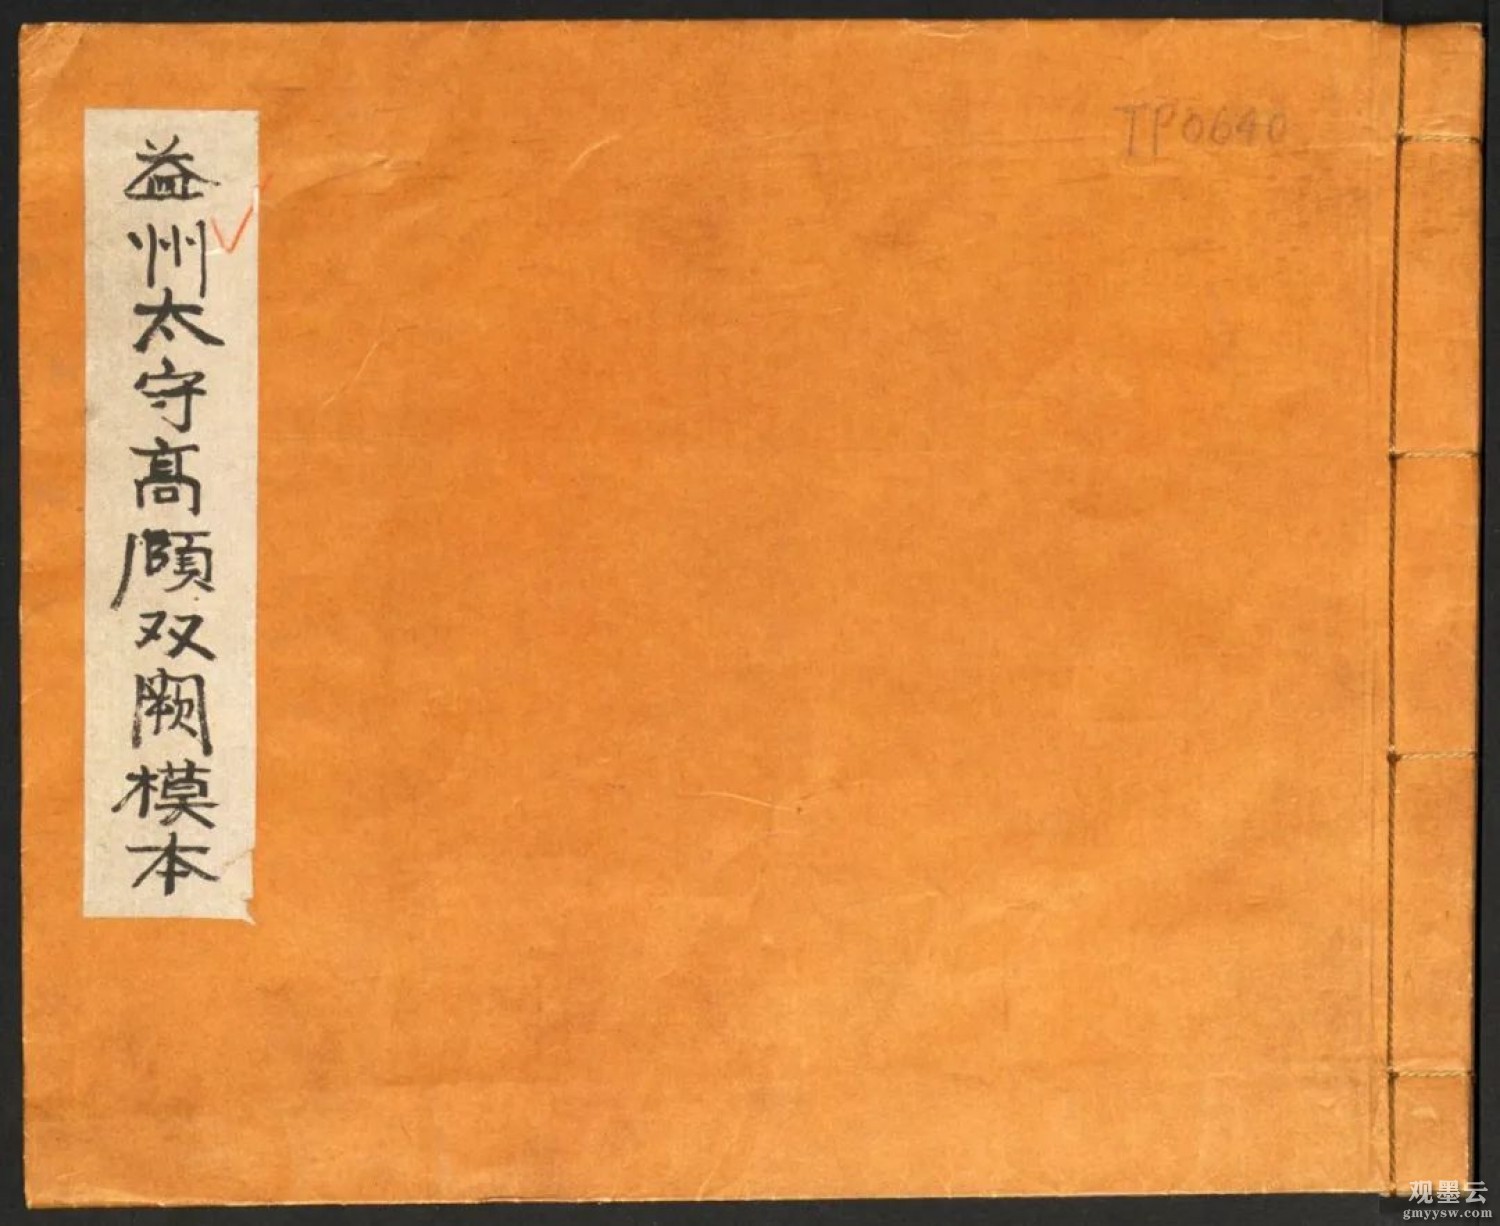 益州太守高頤双闕模本
TP0640
观墨云
gmyysw.com